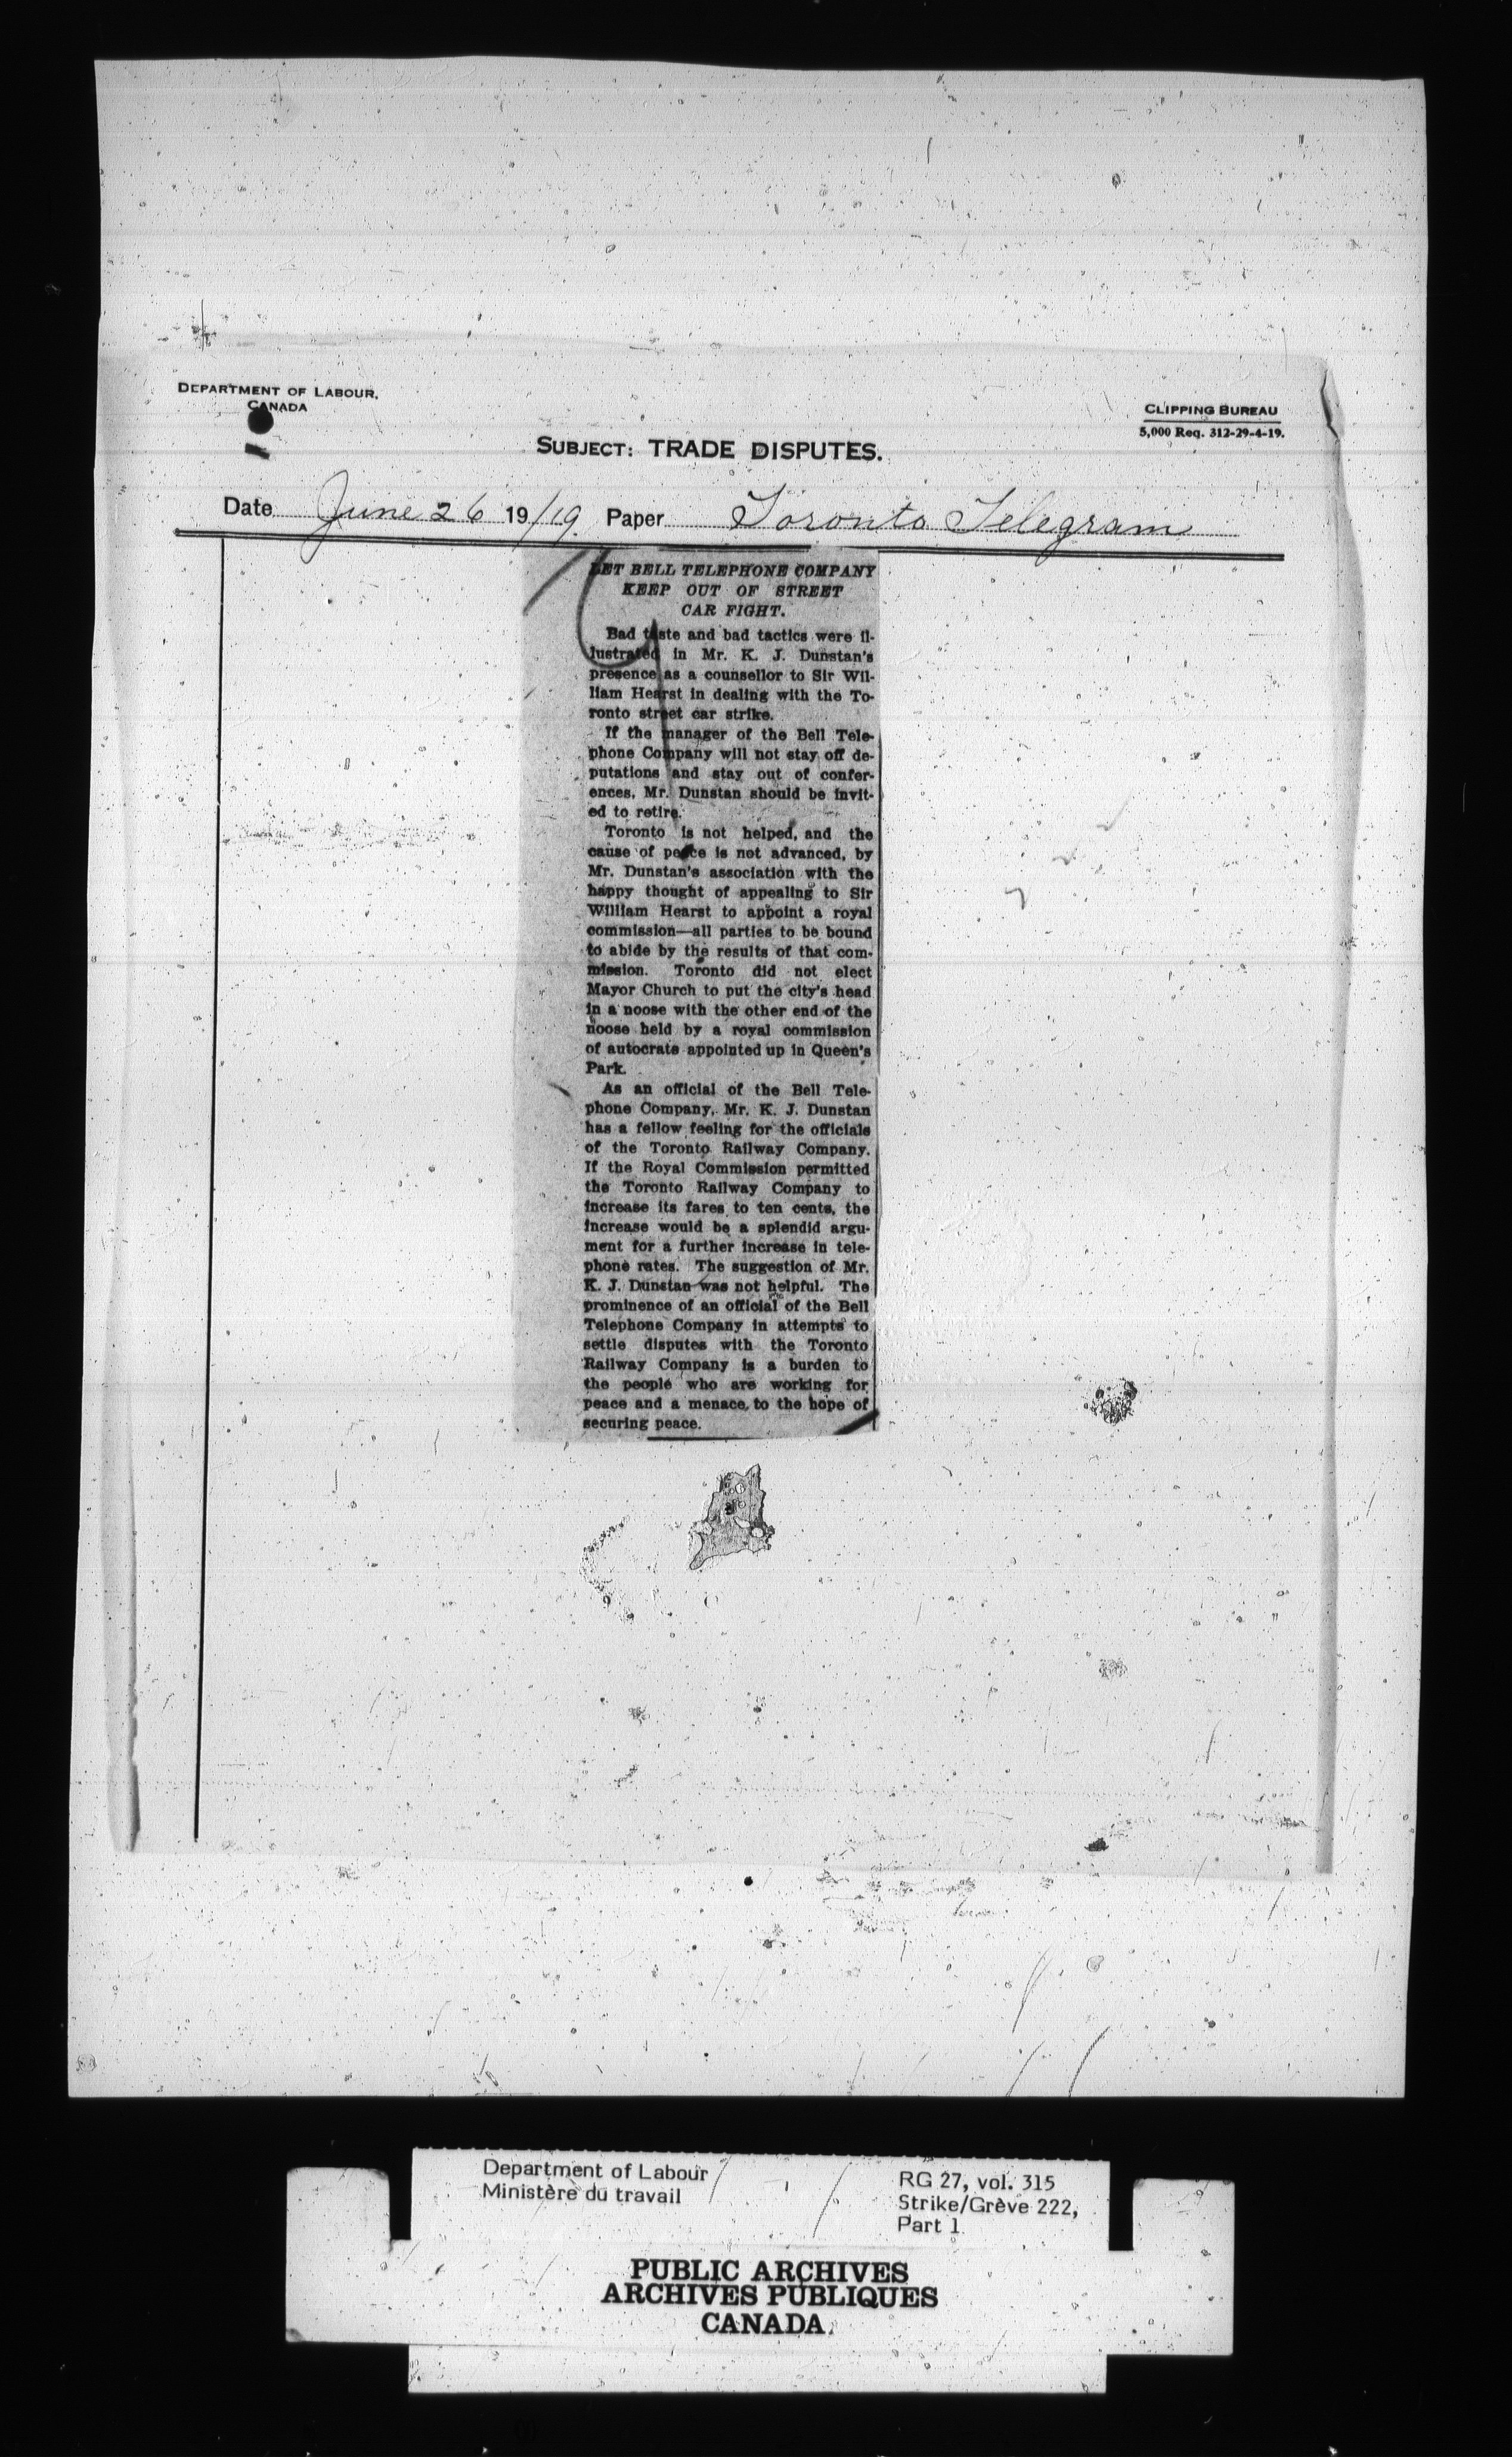 DEPARTMENT OF LABOUR,
CANADA
CLIPPING BUREAU
5,000 Req. 312-29-4-19.
SUBJECT: TRADE DISPUTES.
Date June 26 19/19. Paper Toronto Telegram
LET BELL TELEPHONE COMPANY
KEEP OUT OF STREET
CAR FIGHT.
Bad taste and bad tactics were il-
lustrated in Mr. K. J. Dunstan's
presence as a counsellor to Sir Wil-
liam Hearst in dealing with the To-
ronto street car strike.
If the manager of the Bell Tele-
phone Company will not stay off de-
putations and stay out of confer-
ences, Mr. Dunstan should be invit-
ed to retire.
Toronto is not helped, and the
cause of peace is not advanced, by
Mr. Dunstan's association with the
happy thought of appealing to Sir
William Hearst to appoint a royal
commission—all parties to be bound
to abide by the results of that com-
mission. Toronto did not elect
Mayor Church to put the city's head
in a noose with the other end of the
noose held by a royal commission
of autocrats appointed up in Queen's
Park.
As an official of the Bell Tele-
phone Company, Mr. K. J. Dunstan
has a fellow feeling for the officials
of the Toronto Railway Company.
If the Royal Commission permitted
the Toronto Railway Company to
increase its fares to ten cents, the
increase would be a splendid argu-
ment for a further increase in tele-
phone rates. The suggestion of Mr.
K. J. Dunstan was not helpful. The
prominence of an official of the Bell
Telephone Company in attempts to
settle disputes with the Toronto
Railway Company is a burden to
the people who are working for
peace and a menace to the hope of
securing peace.
Department of Labour
Ministère du travail
RG 27, vol. 315
Strike/Grève 222,
Part 1
PUBLIC ARCHIVES
ARCHIVES PUBLIQUES
CANADA